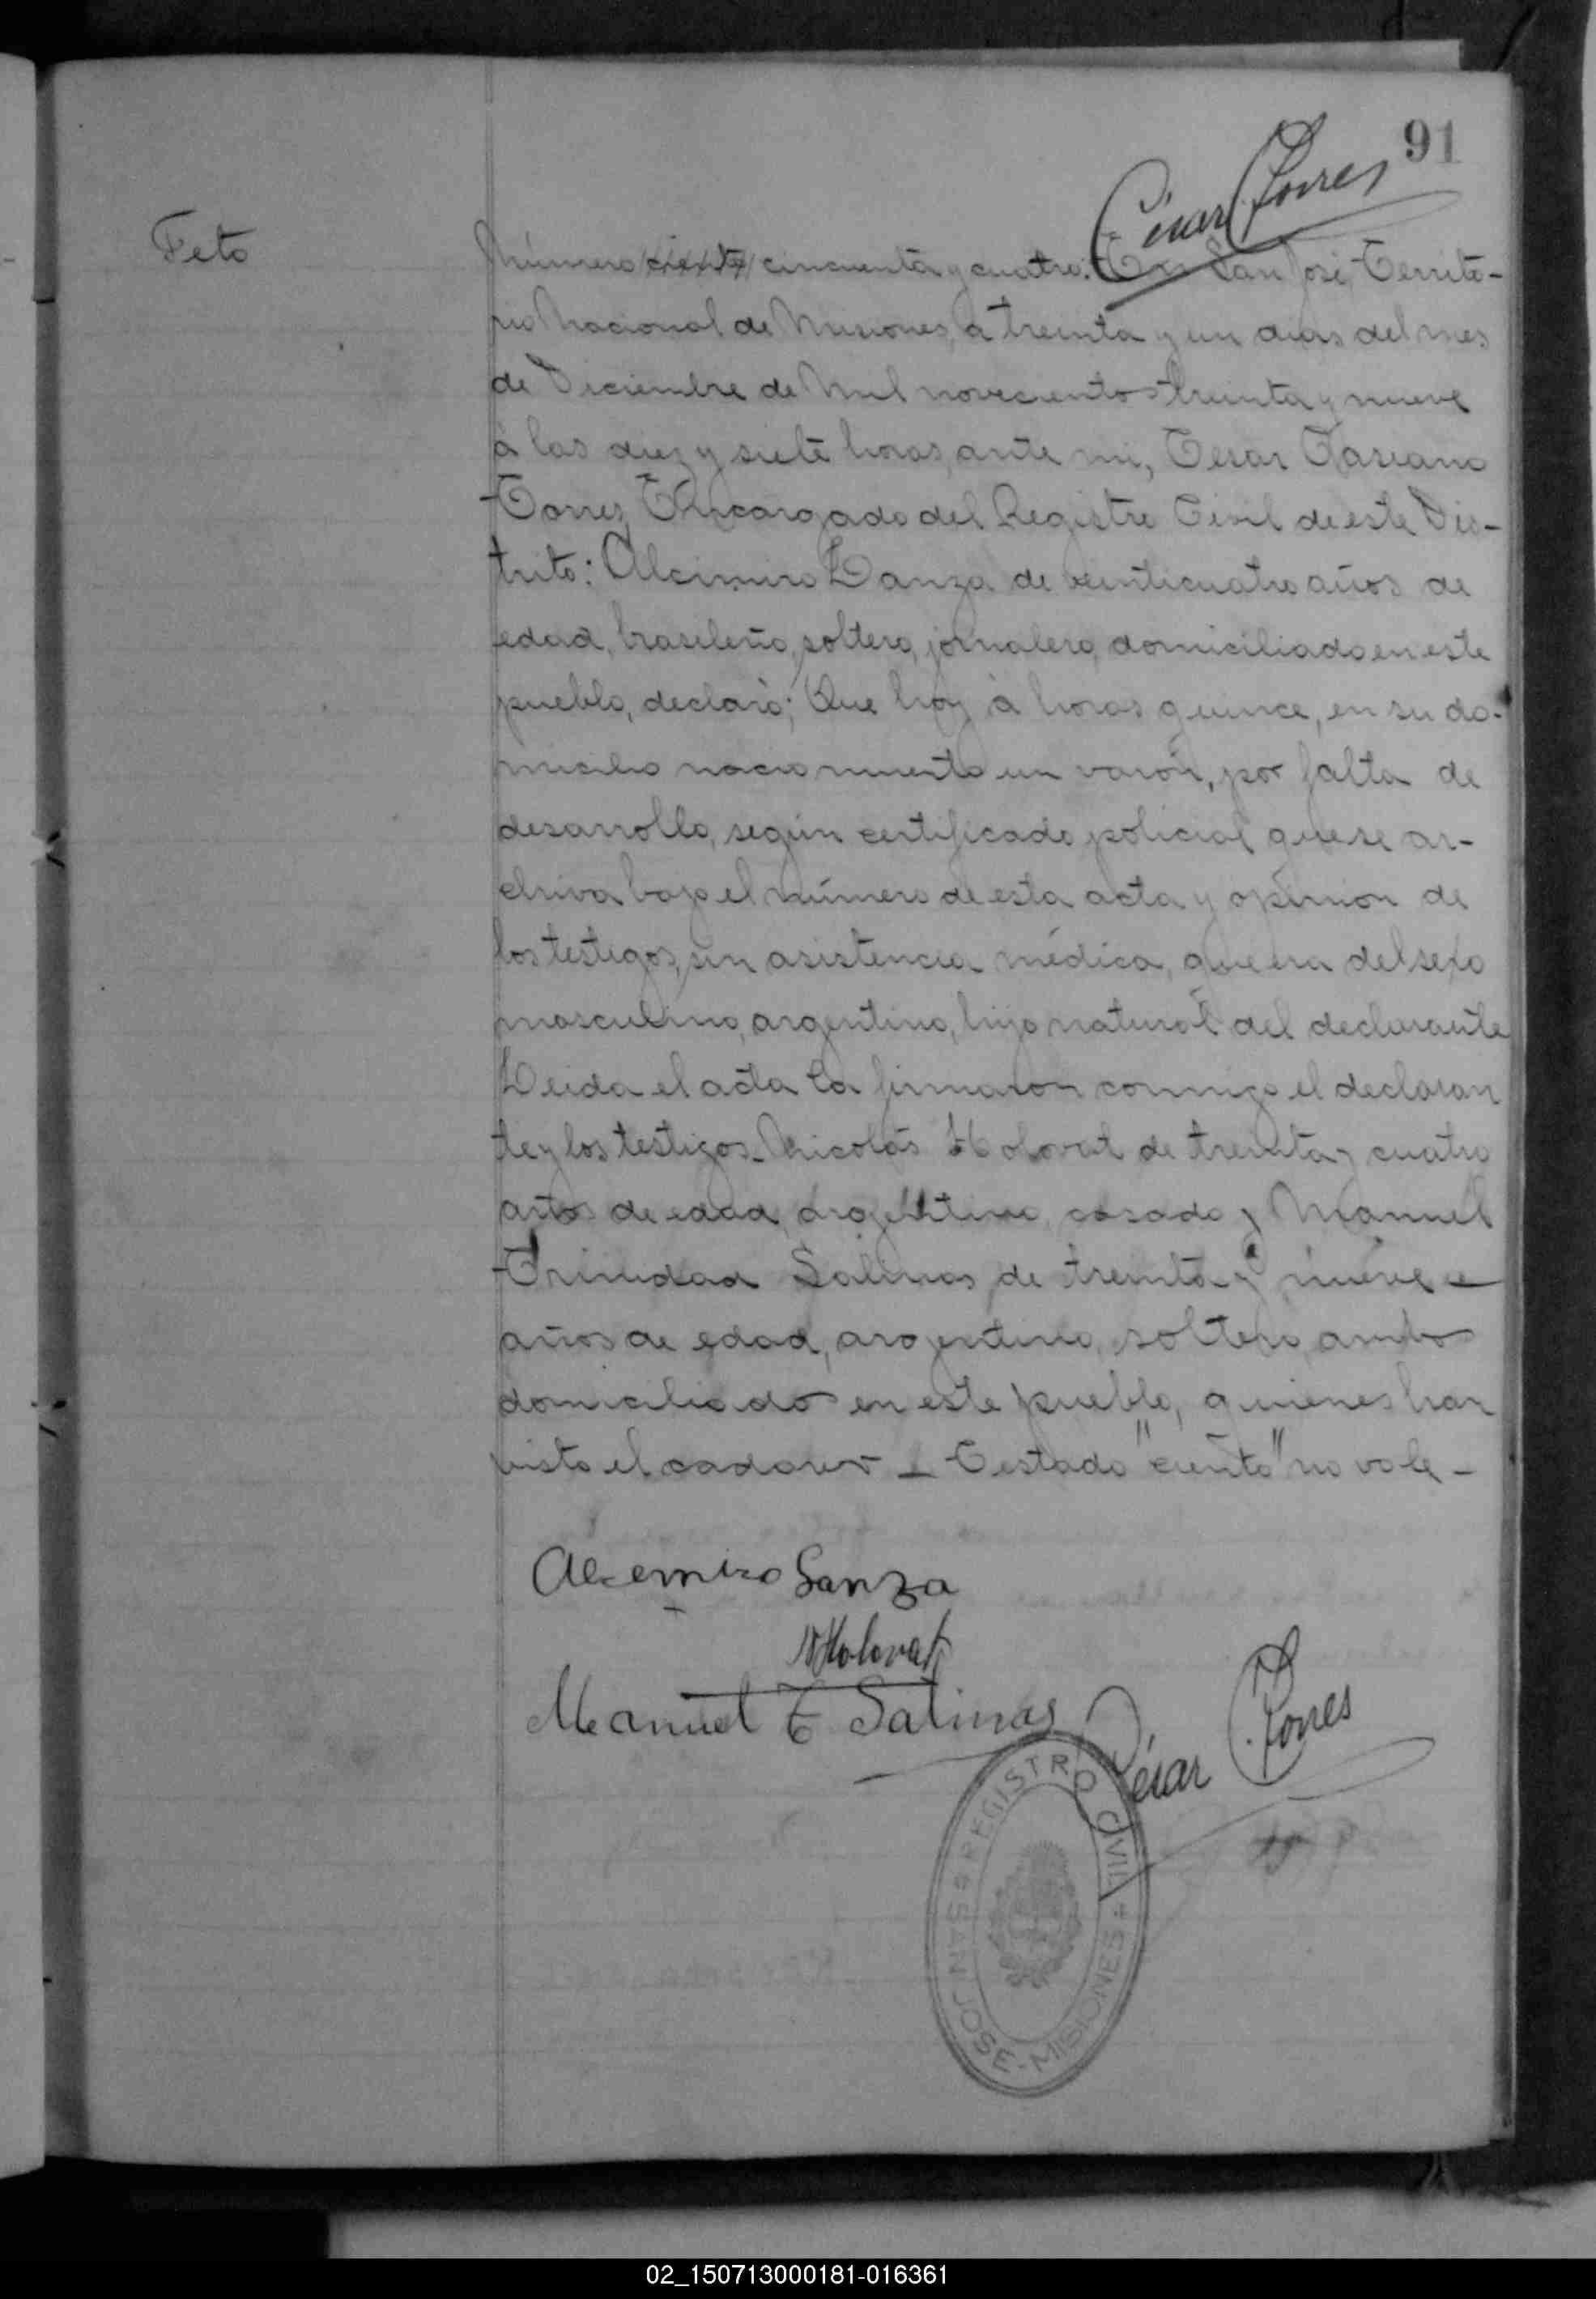 91
César T Torres
Feto
Número ciento cincuenta y cuatro: En San José, Territo-
rio Nacional de Misiones, a treinta y un dias del mes
de Diciembre de Mil novecientos treinta y nueve
á las diez y siete horas, ante mi, Cesar Tasiano
Torres, Encargado del Registro Civil de este Dis-
trito: Alcimiro Lanza de veinticuatro años de
edad, brasileño, soltero, jornalero, domiciliado en este
pueblo, declaró; Que hoy á horas quince, en su do-
micilio nacio muerto un varón, por falta de
desarrollo, según certificado policial que se ar-
chiva bajo el número de esta acta y opinion de
los testigos, sin asistencia médica, que era del sexo
masculino, argentino, hijo natural del declarante
Leida el acta la firmaron conmigo el declaran
te y los testigos Nicolás Holovat de treinta y cuatro
años de edad, argentino, casado y Manuel
Trinidad Salinas de treinta y nueve
años de edad, argentino, soltero, ambos
domiciliados en este pueblo, quienes han
visto el cadaver - Testado "ciento" no vale -
Alcemiro Lanza
N Holovat
Manuel T Salinas
César T Torres
REGISTRO CIVIL
SAN JOSE - MISIONES
02_150713000181-016361